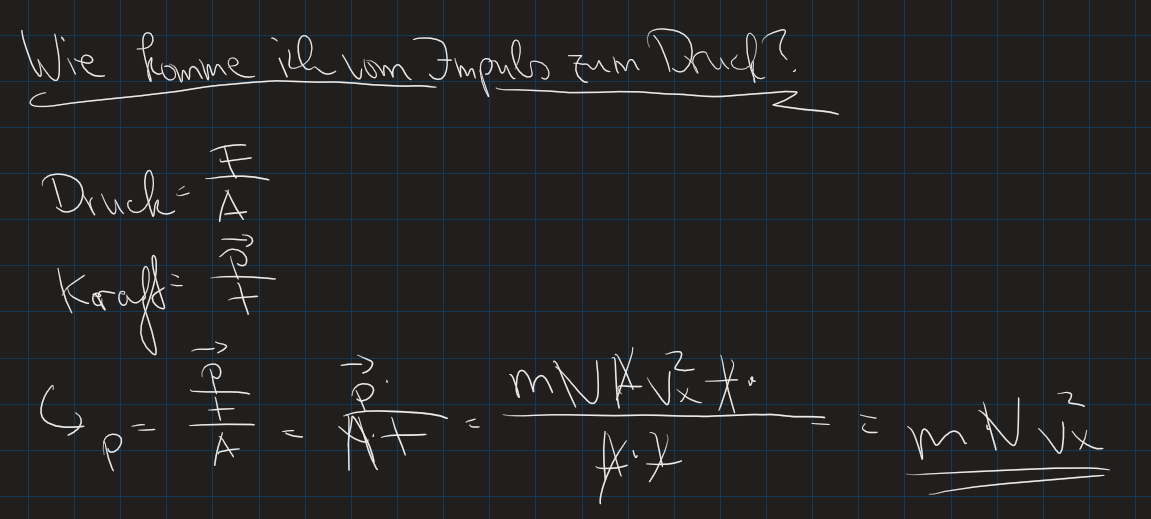 Wie komme ich vom Impuls zum Druck?
Druck = F/A
Kraft = p⃗/t
↪ p = (p⃗/t)/A = p⃗/(A·t) = (m N A v_x² t)/(A·t) = m N v_x²